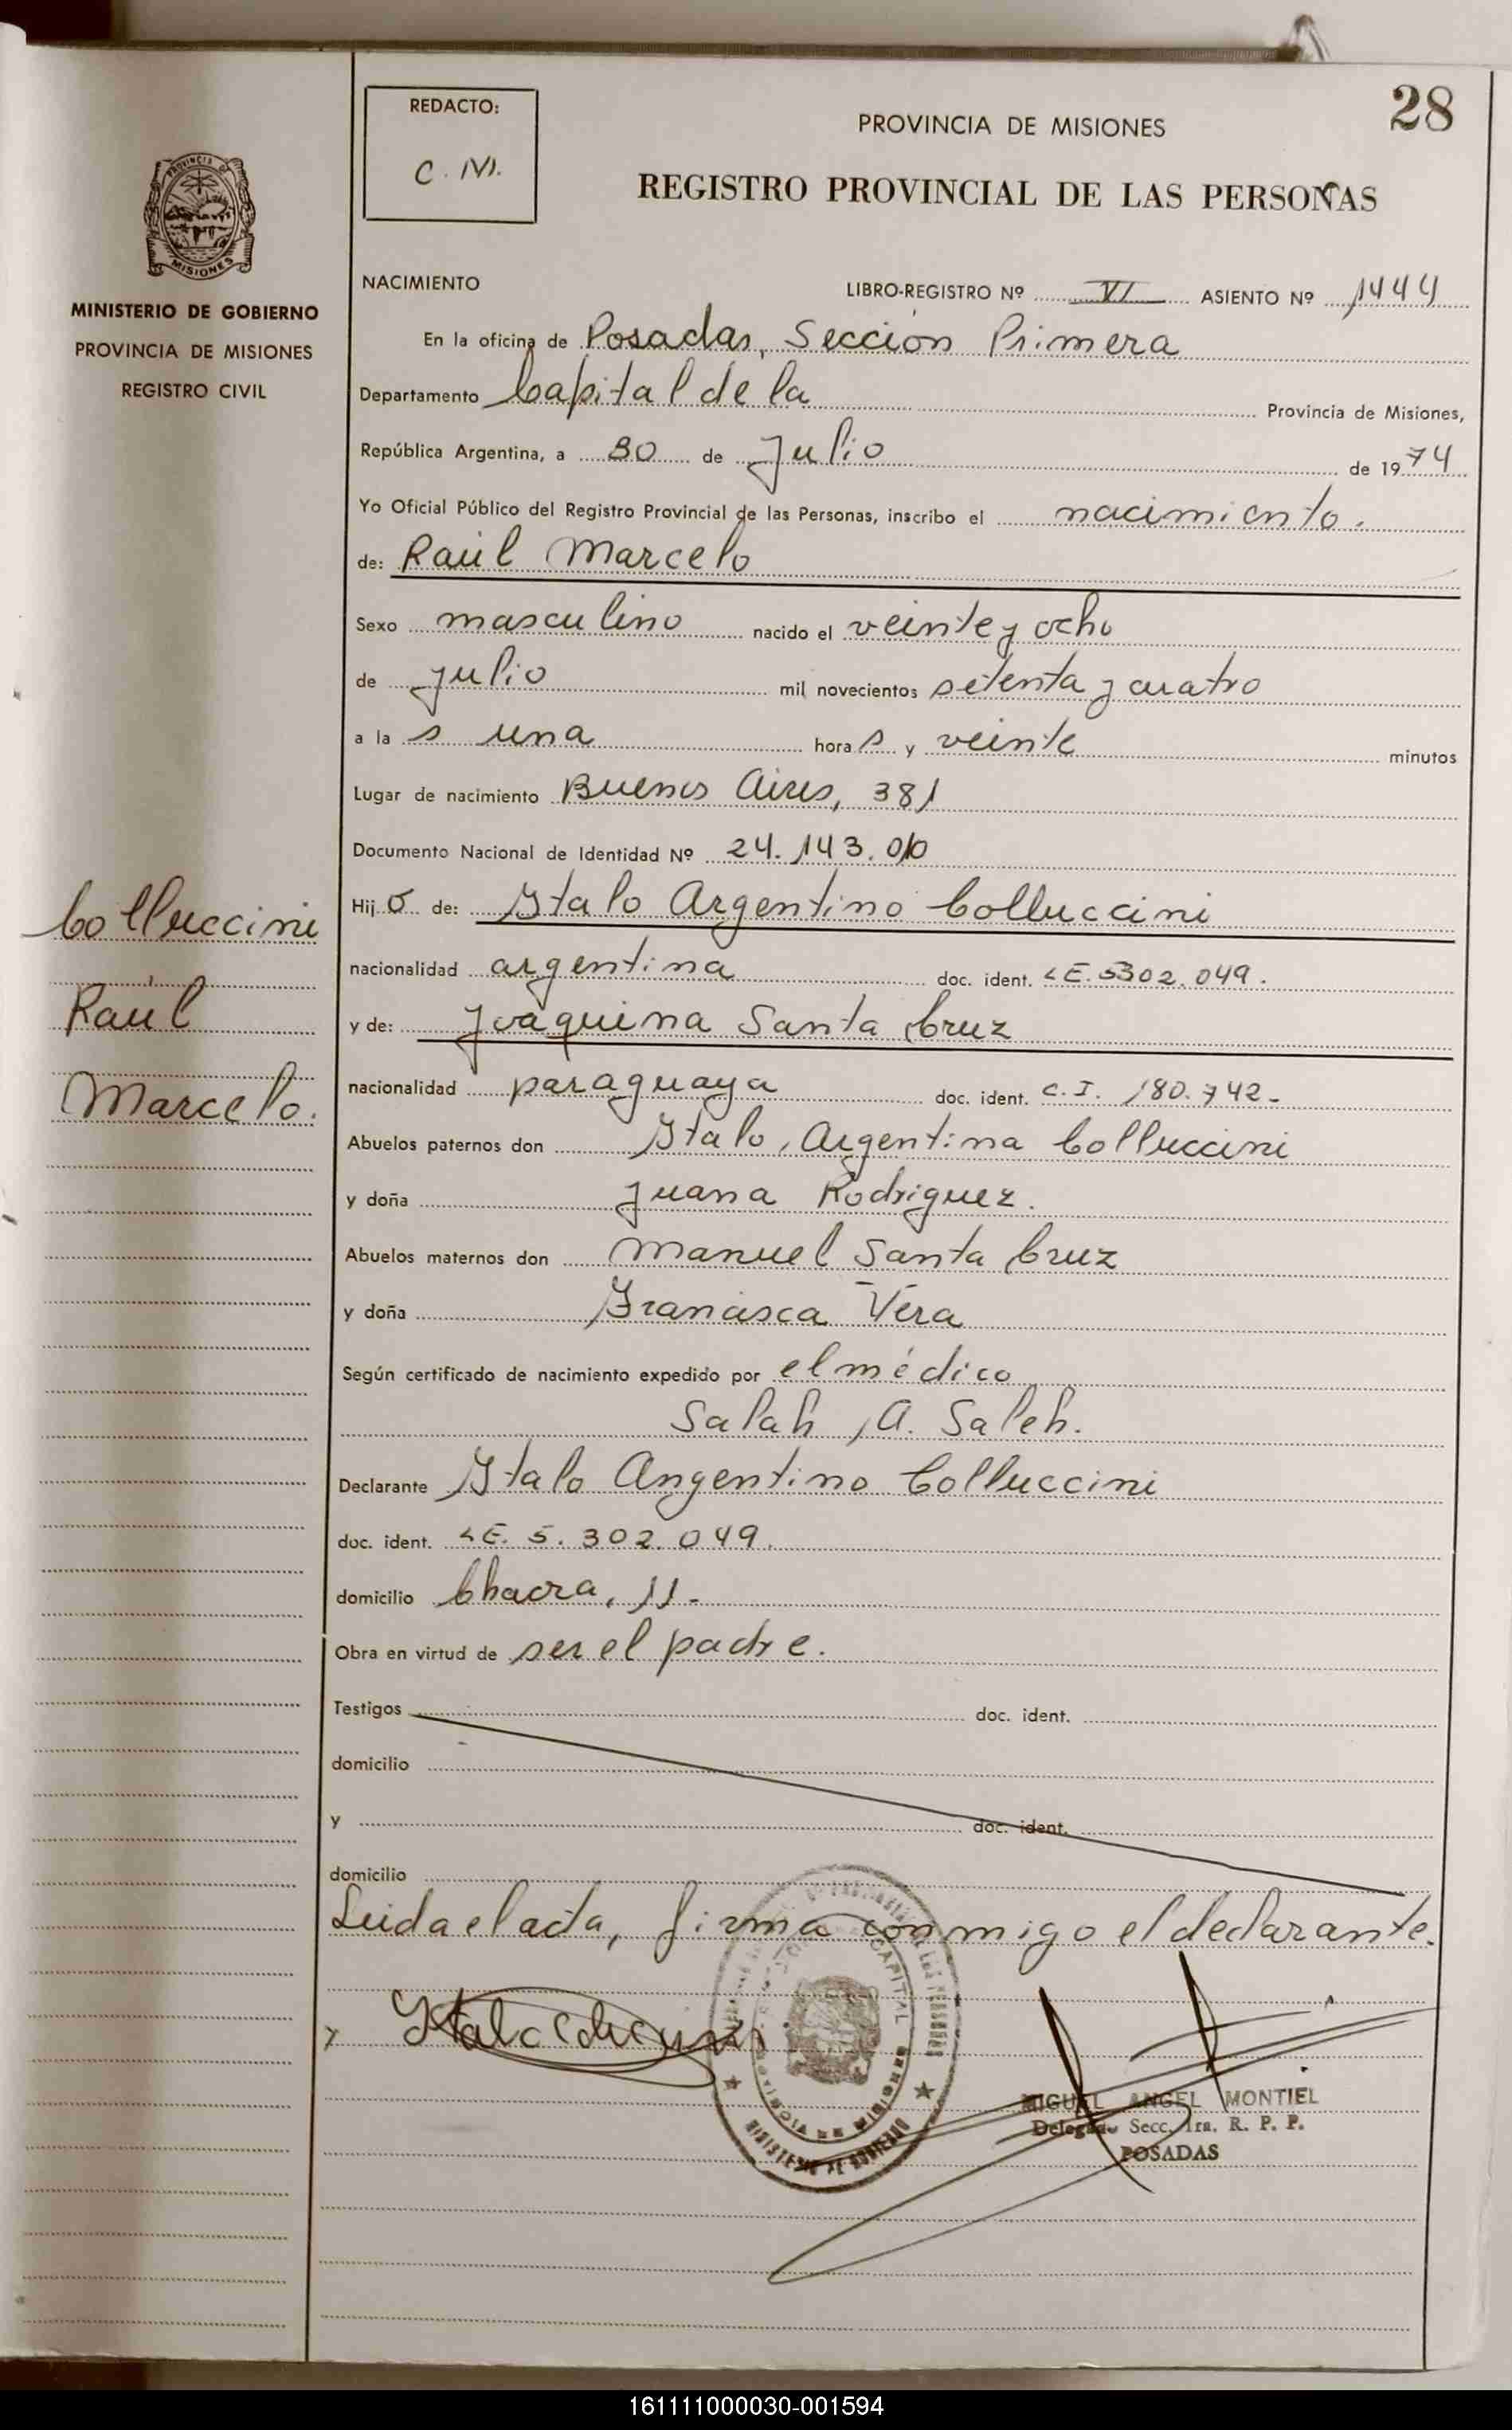 28
REDACTO:
C. M.
PROVINCIA DE MISIONES
REGISTRO PROVINCIAL DE LAS PERSONAS
PROVINCIA
MISIONES
MINISTERIO DE GOBIERNO
PROVINCIA DE MISIONES
REGISTRO CIVIL
NACIMIENTO
LIBRO-REGISTRO Nº VI ASIENTO Nº 1444
En la oficina de Posadas, Sección Primera
Departamento Capital de la Provincia de Misiones,
República Argentina, a 30 de Julio de 1974
Yo Oficial Público del Registro Provincial de las Personas, inscribo el nacimiento.
de: Raúl Marcelo
Sexo masculino nacido el veinte y ocho
de julio mil novecientos setenta y cuatro
a las una horas y veinte minutos
Lugar de nacimiento Buenos Aires, 381
Documento Nacional de Identidad Nº 24.143.010
Hijo de: Italo Argentino Colluccini
nacionalidad argentina doc. ident. LE. 5302.049.
y de: Joaquina Santa Cruz
nacionalidad paraguaya doc. ident. C.I. 180.742-
Abuelos paternos don Italo, Argentina Colluccini
y doña Juana Rodriguez.
Abuelos maternos don Manuel Santa Cruz
y doña Francisca Vera
Según certificado de nacimiento expedido por el médico
Salah, A. Saleh.
Declarante Italo Angentino Colluccini
doc. ident. LE. 5.302.049.
domicilio Chacra, 11.-
Obra en virtud de ser el padre.
Testigos doc. ident.
domicilio
y doc. ident.
domicilio
Leida el acta, firma conmigo el declarante.
Colluccini
Raúl
Marcelo.
CAPITAL
PROVINCIA DE MISIONES
MINISTERIO DE GOBIERNO
MIGUEL ANGEL MONTIEL
Delegado Secc. 1ra. R. P. P.
POSADAS
161111000030-001594